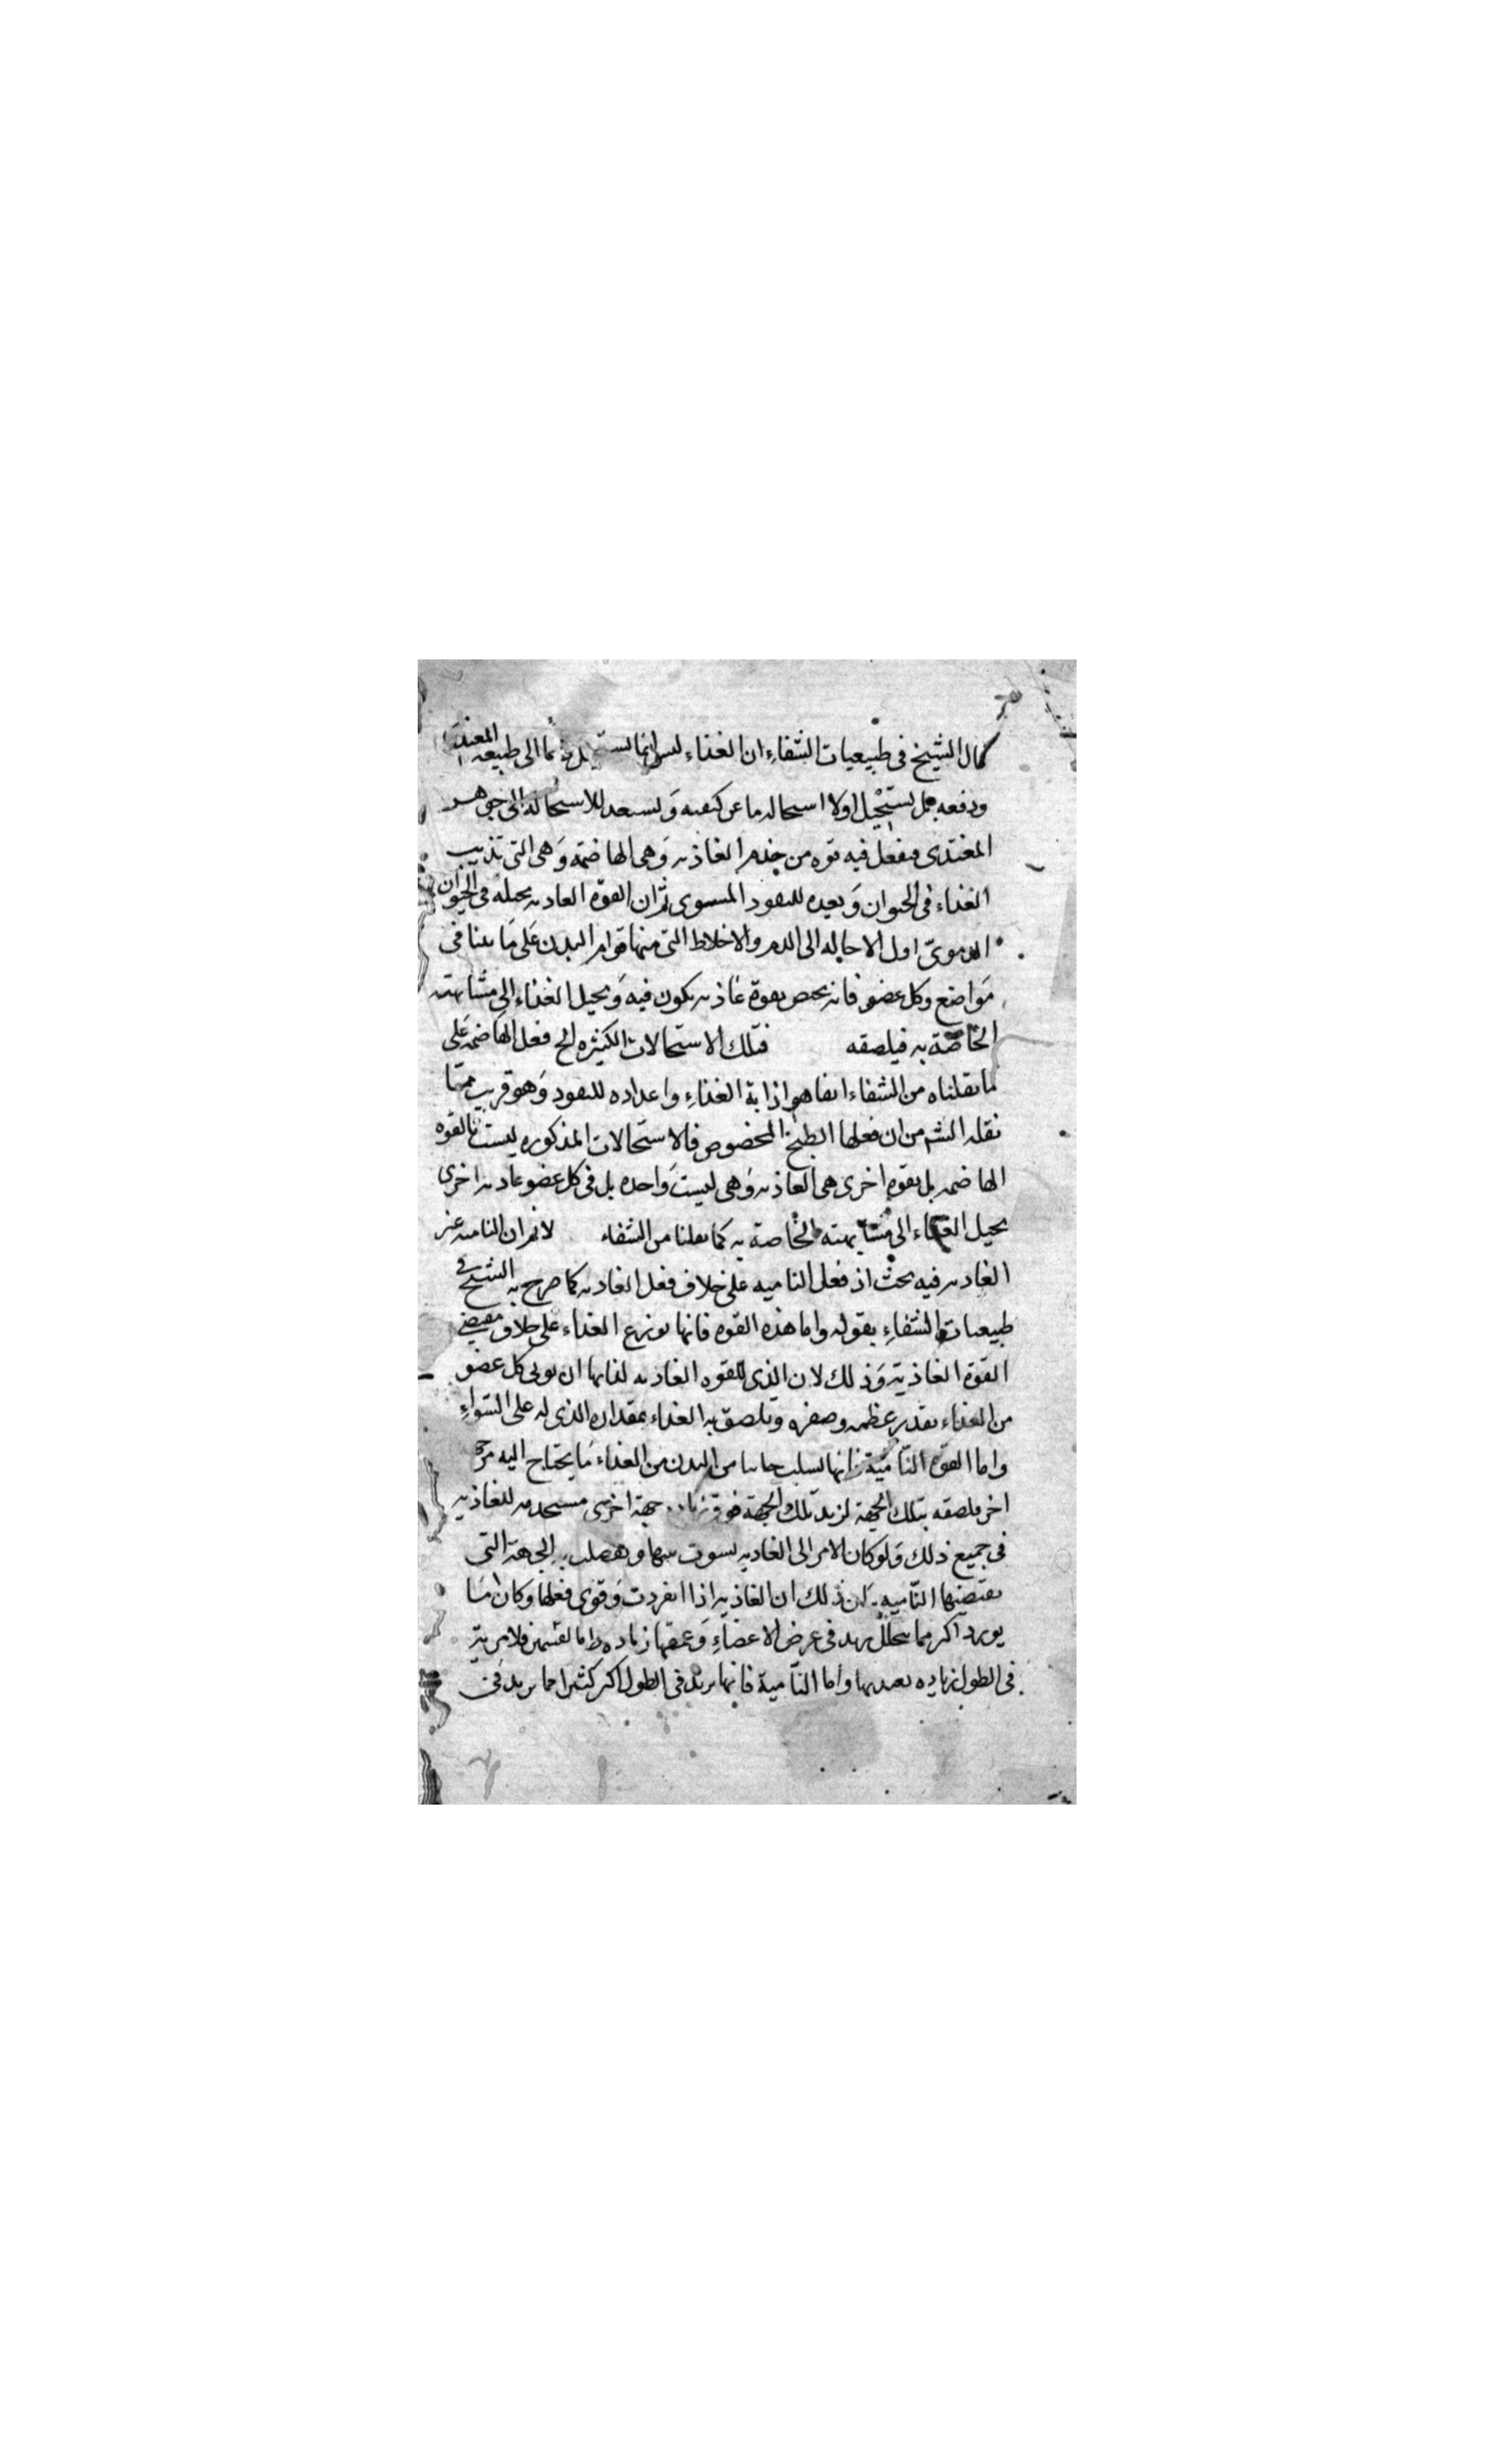 قال الشيخ في طبيعيات الشفاء ان الغذاء ليس انما الى طبيعة المغتذي
ودفعه بل يستحيل اولا استحاله ما عن كيفيته وَيستعد للاستحالة الى جوهر
المغتذى فيفعل فيه قوه من خدم الغاذيه وَهى الهاضمة وَهى التى تذيب
الغذاء فى الحيوان وَيعده للنفوذ المستوى ثم ان القوّة الغاذيه يحيله فى الحيوان
الدموىّ اول الاحاله الى الدم والاخلاط التى منها قوام البدن عَلى مَا بينا فى
مَواضع وكل عضو فانه يختص بقوة غاذيه يكون فيه وَيحيل الغذاء الى مشابهته
الخاصّة به فيلصقه فتلك الاستحالات الكثيره الخ فعل الهاضمه عَلى
ما نقلناه من الشفاء انفا هو اذابة الغذاءِ واعداده للنفوذ وَهو قريب ممّا
نقله الشم من ان فعلها الطبخ المخصوص فالاستحالات المذكوره ليست بالقوه
الهاضمه بل بقوه اخرى هى الغاذيه وَهى ليست وَاحده بل فى كل عضو غاذيه اخرى
يحيل الغذاء الى مشابهته الخاصة به كما نقلنا من الشفاء لانم ان الناميه غير
الغاذيه فيه بحث اذ فعل الناميه على خلاف فعل الغاذيه كما صرح به الشيخ في
طبيعيات الشفاءِ بقوله واما هذه القوه فانها توزع الغذاء على خلاف مقتضى
القوّة الغاذيّة وَذلك لان الذى للقوه الغاذيه لذاتها ان يوتى كل عضو
من الغذاء بقدر عظمه وصغره وتلصق به الغذاء بمقداره الذى له على السّواءِ
واما القوه النّاميّة فانها تسلب جانبا من البدن من الغذاء مَا يحتاج اليه من جهة
اخر فلصقه بتلك الجهة لزيد تلك الجهة فوق زيادة جهة اخرى مستخدمه للغاذيه
فى جميع ذلك وَلو كان الامر الى الغاذيه لسوت بينها الجهة التى
تقتضيها النّاميه ذلك ان الغاذيه اذا انفردت وَقوى فعلها وكان مَا
يورد اكثر مما يتحلل يزيد فى عرض الاعضاءِ وَعمقها زياده
فى الطول زياده يعتد بها واما النّامية فانها يزيد فى الطول اكثر كثيرا مما يزيد فى